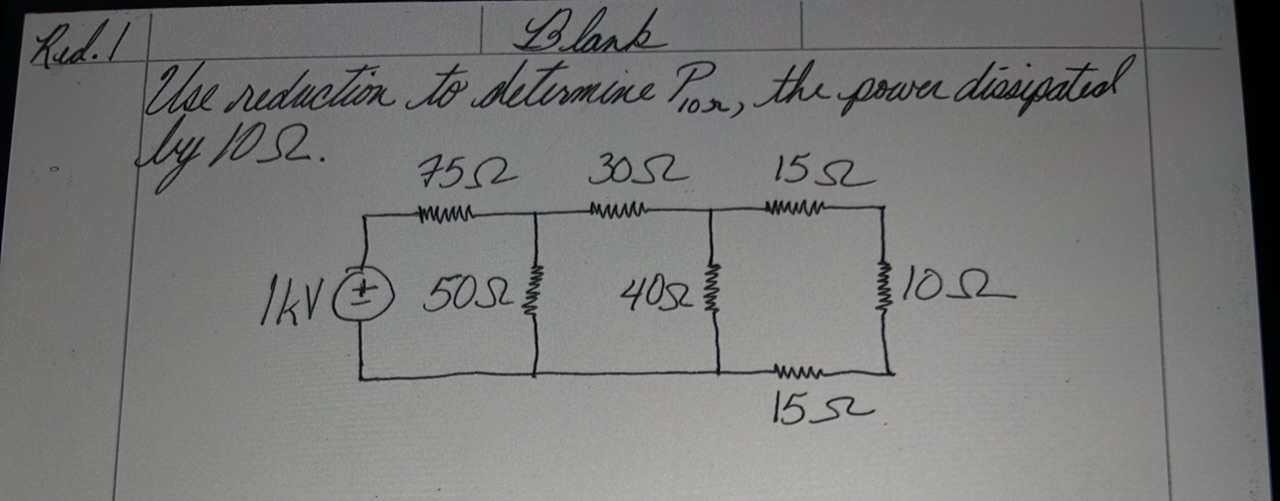 Red. 1
Blank
Use reduction to determine P10Ω, the power dissipated
by 10Ω.
75Ω 30Ω 15Ω
1kV + - 50Ω 40Ω 10Ω
15Ω